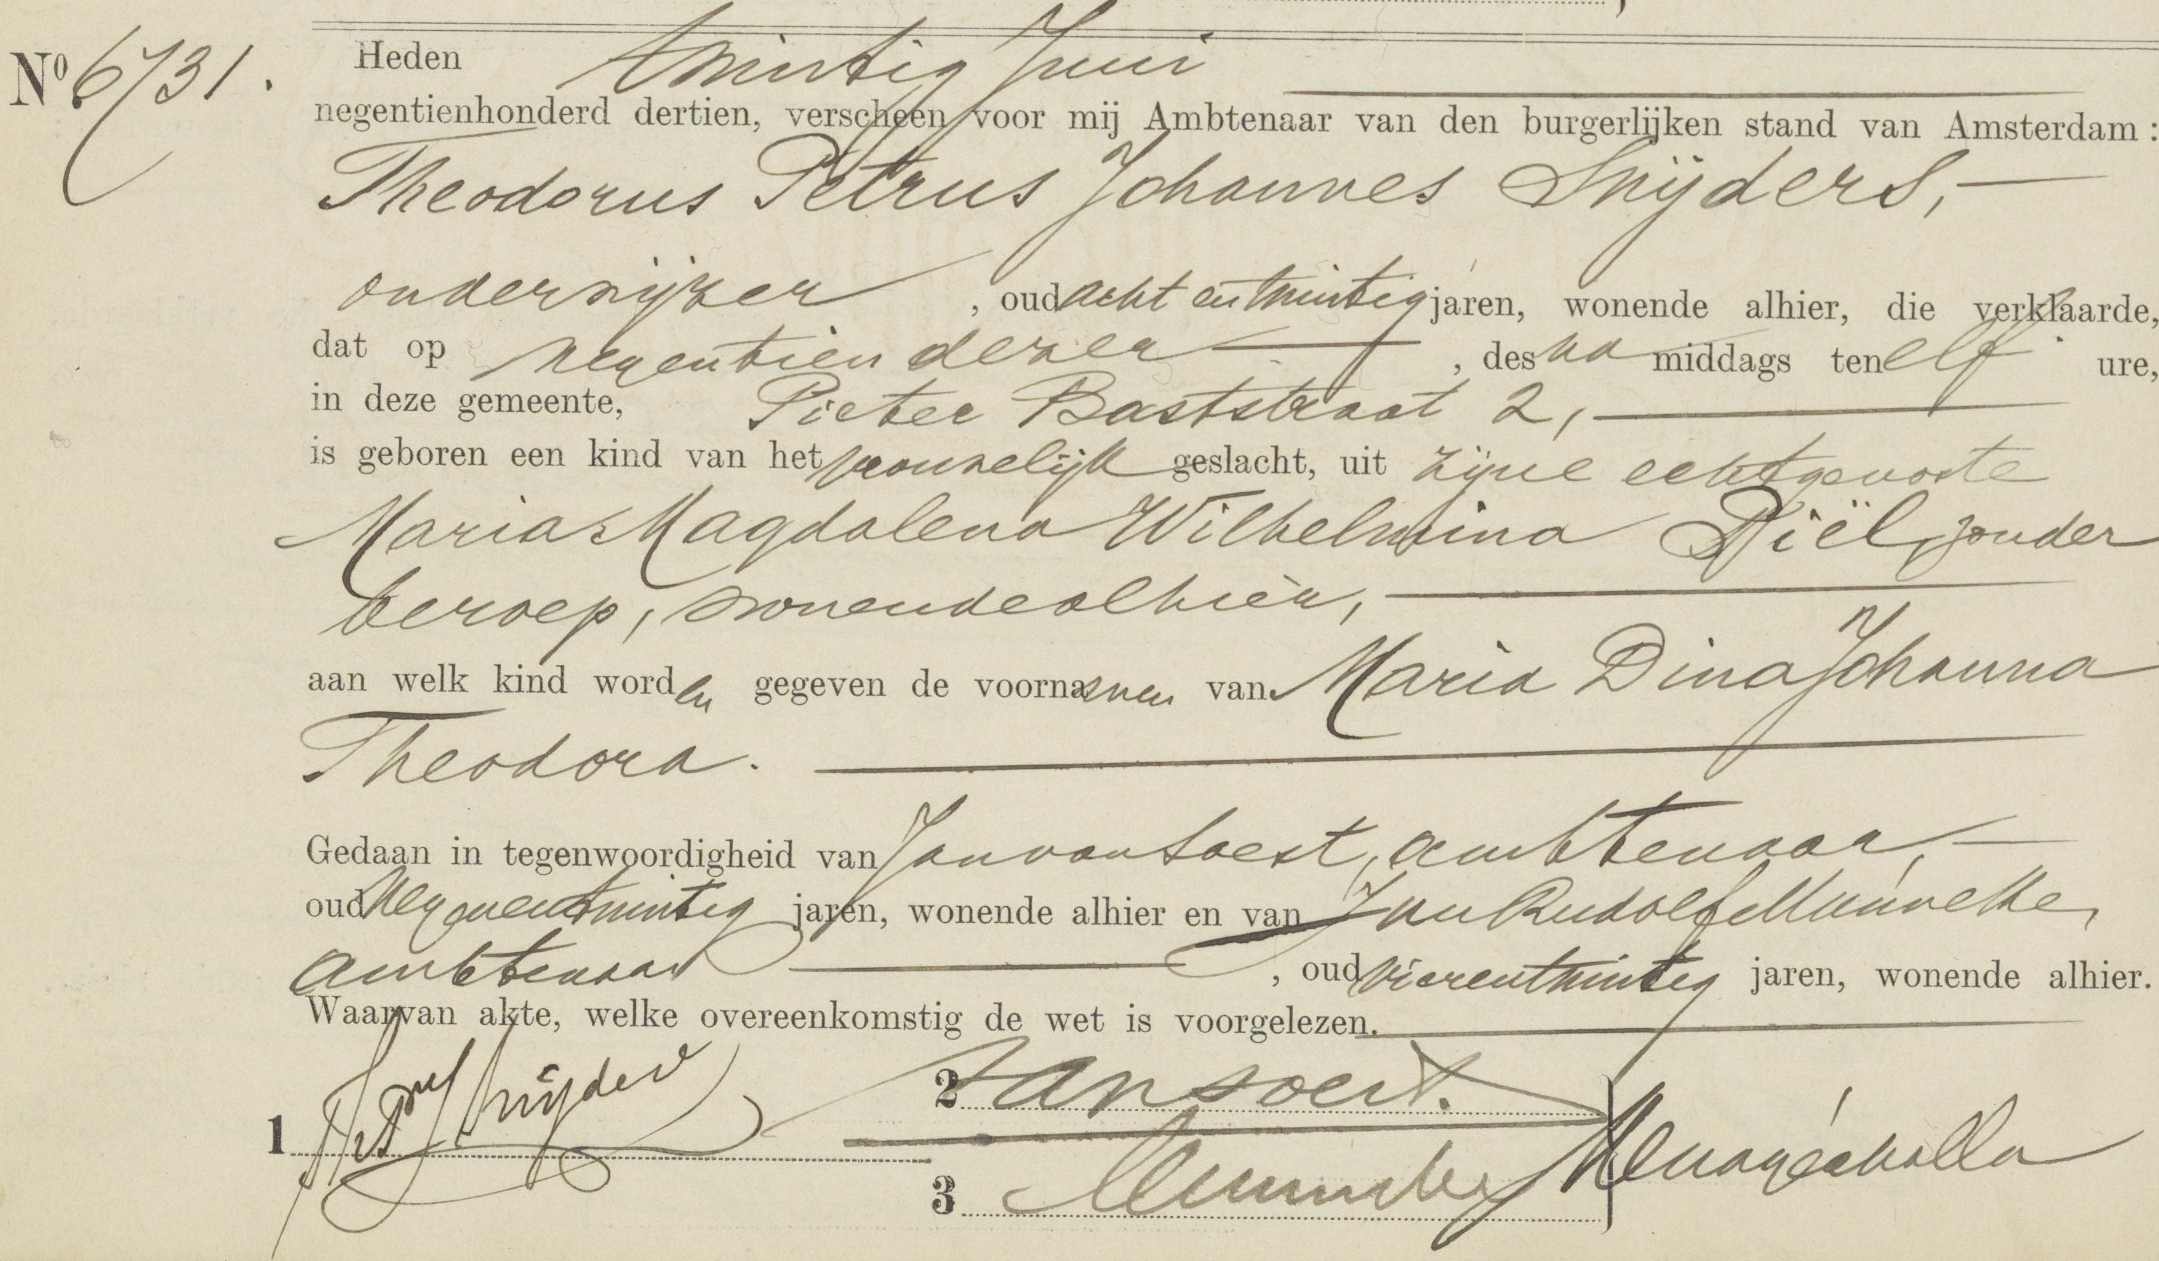 No. 6731.
Heden twintig Juni
negentienhonderd dertien, verscheen voor mij Ambtenaar van den burgerlijken stand van Amsterdam:
Theodorus Petrus Johannes Snijders,
onderwijzer, oud acht en twintig jaren, wonende alhier, die verklaarde,
dat op negentien dezer, des na middags ten elf ure,
in deze gemeente, Pieter Baststraat 2,
is geboren een kind van het vrouwelijk geslacht, uit zijne echtgenoote
Maria Magdalena Wilhelmina Piël, zonder
beroep, wonende alhier,
aan welk kind worden gegeven de voornamen van Maria Dina Johanna
Theodora.
Gedaan in tegenwoordigheid van Jan van Soest, ambtenaar,
oud negenentwintig jaren, wonende alhier en van Jan Rudolf Münneke,
ambtenaar, oud vierentwintig jaren, wonende alhier.
Waarvan akte, welke overeenkomstig de wet is voorgelezen.
1 Snijders
2 van Soest.
3